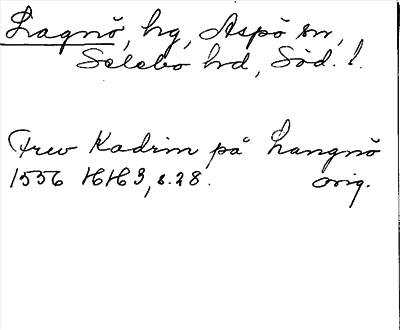 Lagnö, hg, Aspö sn,
Selebo hd, Söd. l.
Frw Kadrin på Langnö
1556 HH 3, s. 28. orig.